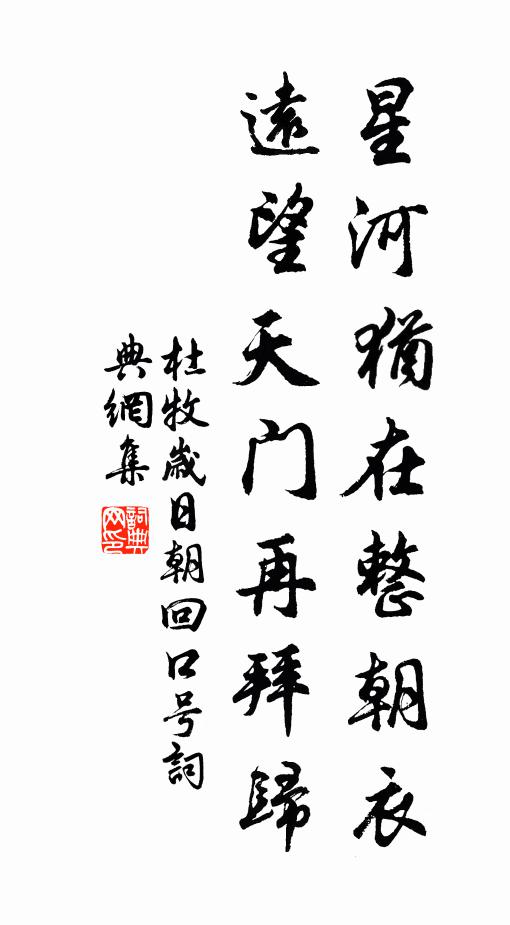 星河猶在整朝衣
遠望天门再拜歸
杜牧歲日朝回口号詞
典網集
詞典网印